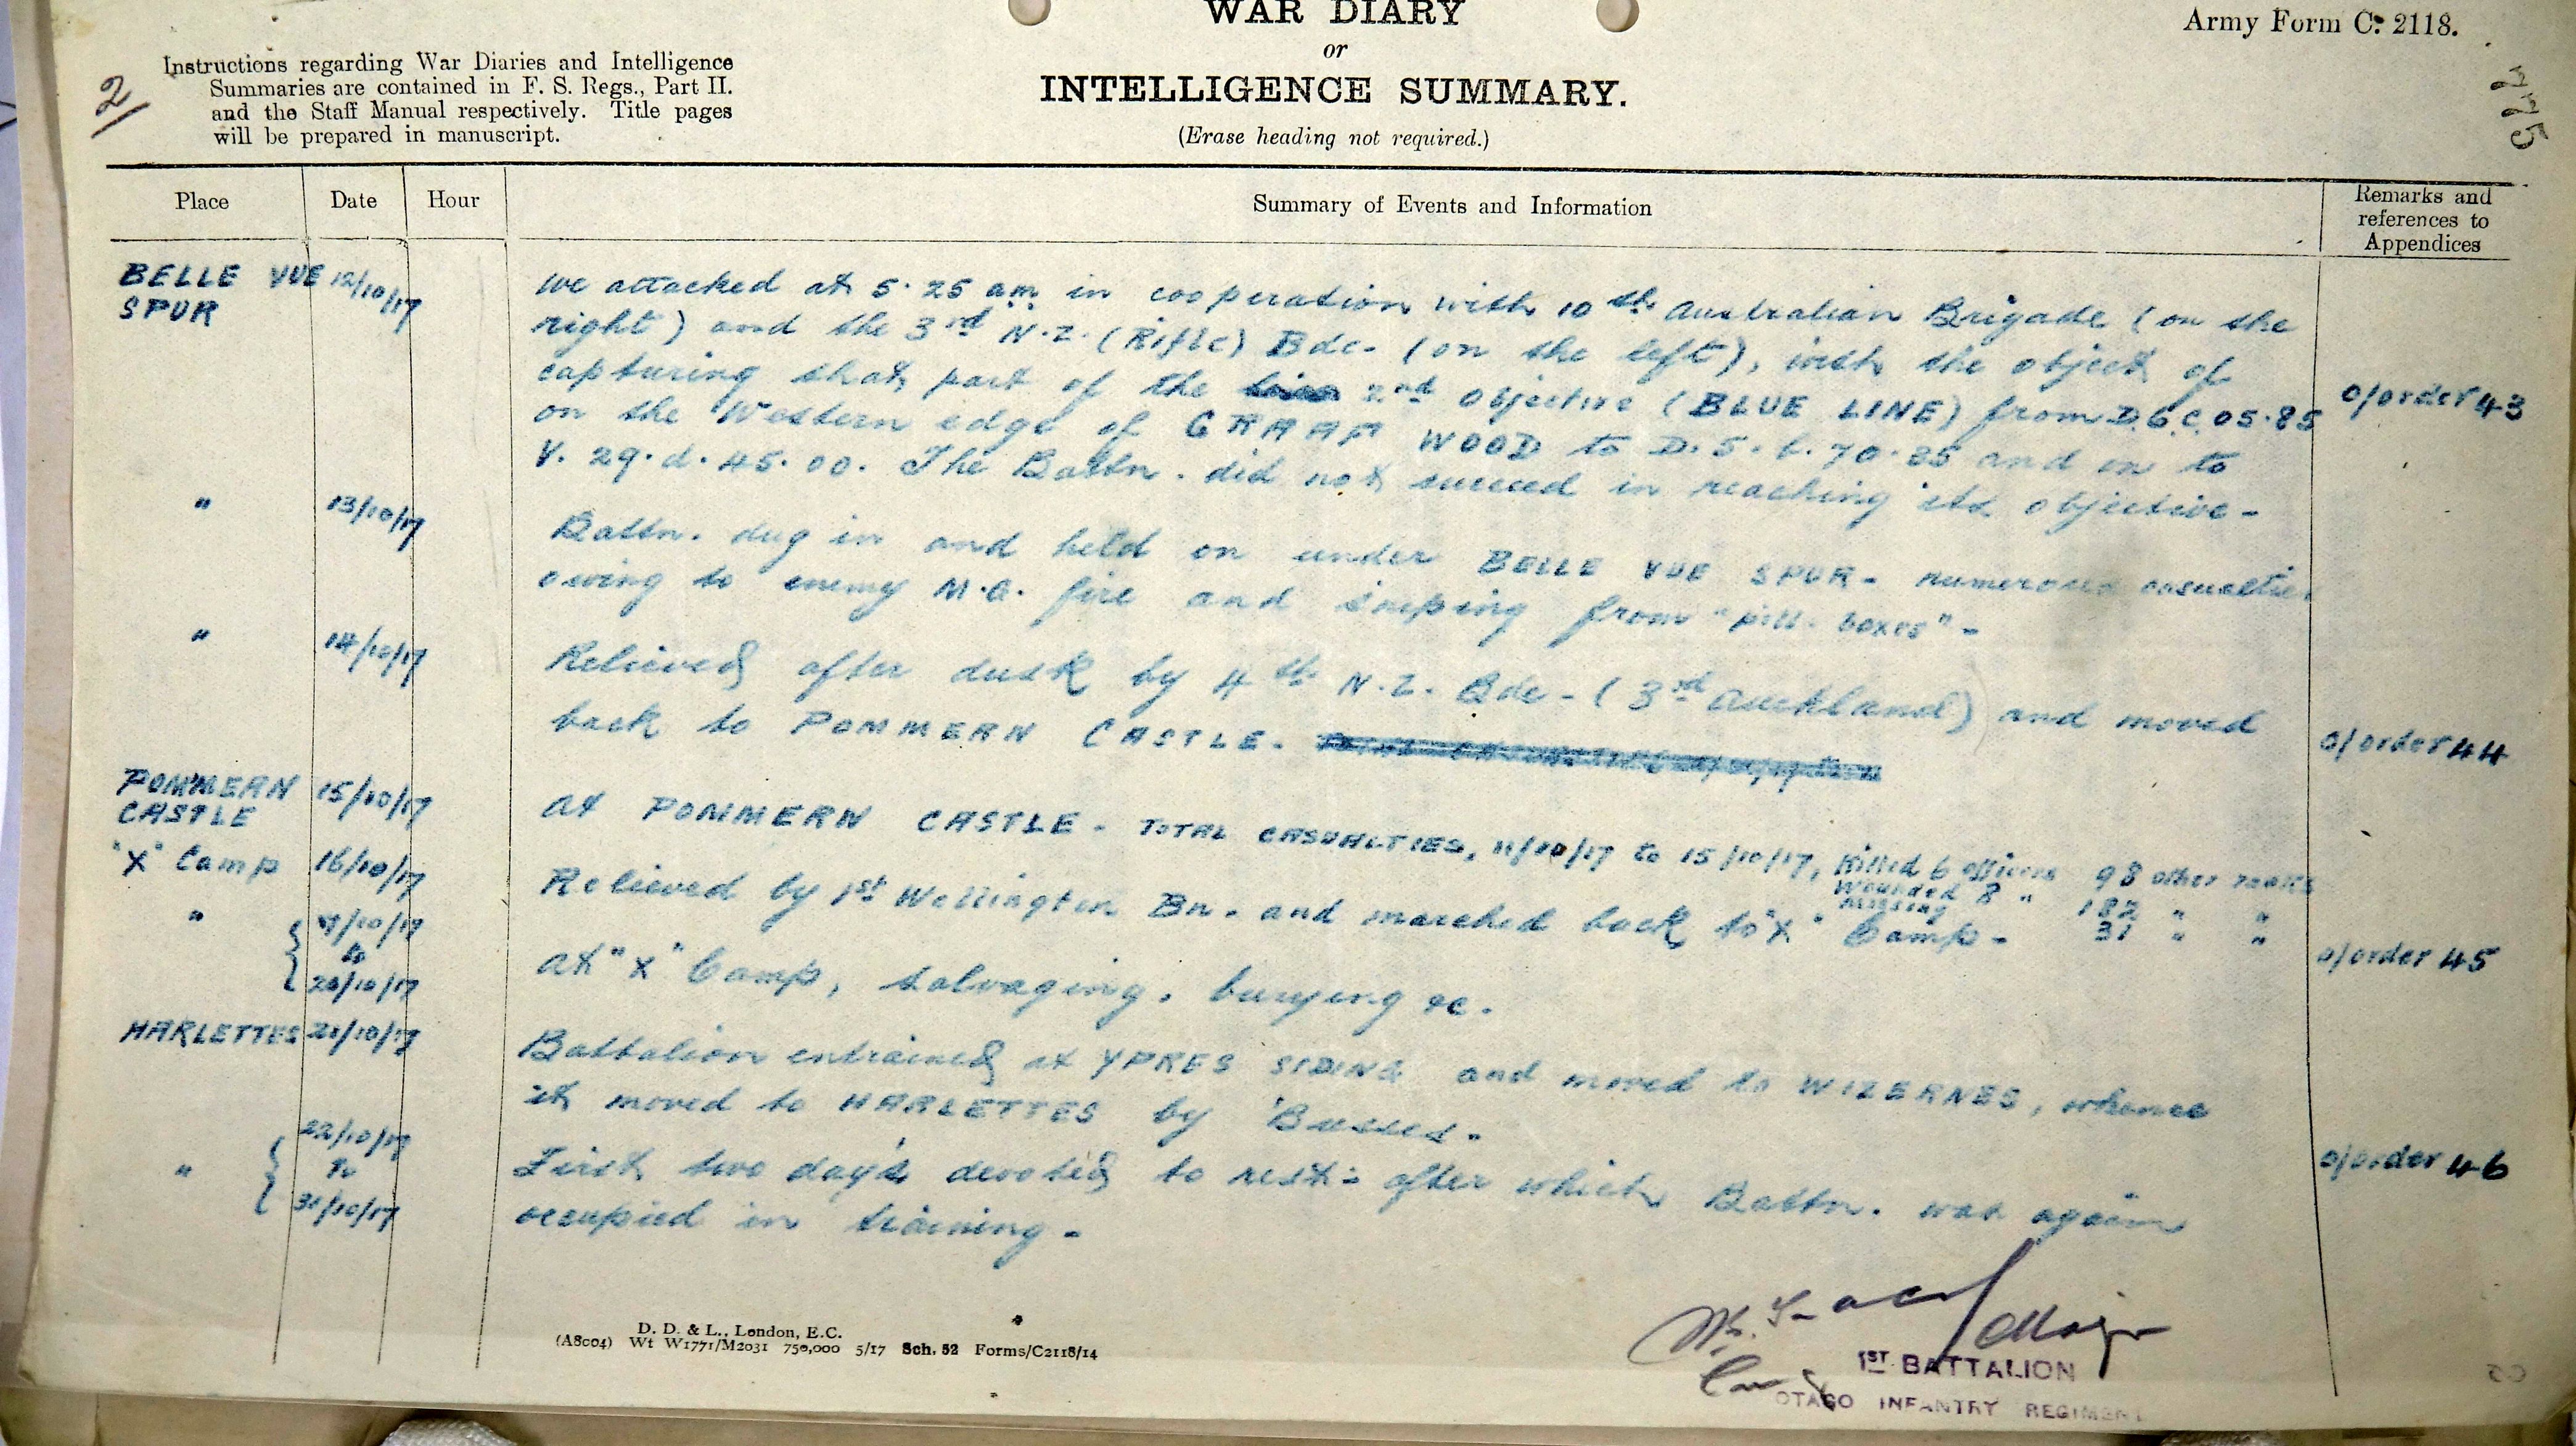 WAR DIARY
or
INTELLIGENCE SUMMARY.
(Erase heading not required.)
Army Form C. 2118.
Instructions regarding War Diaries and Intelligence
Summaries are contained in F. S. Regs., Part II.
and the Staff Manual respectively. Title pages
will be prepared in manuscript.
2
275
Place Date Hour Summary of Events and Information Remarks and references to Appendices
BELLE VUE SPUR 12/10/17
We attacked at 5.25 am in cooperation with 10th Australian Brigade (on the
right) and the 3rd N.Z. (Rifle) Bde. (on the left), with the object of
capturing that part of the 2nd objective (BLUE LINE) from D.6.c.05.85
on the Western edge of GRAAF WOOD to D.5.b.70.85 and on to
V.29.d.45.00. The Battn. did not succeed in reaching its objective -
o/order 43
" 13/10/17
Battn. dug in and held on under BELLE VUE SPUR - numerous casualties
owing to enemy M.G. fire and sniping from "pill-boxes" -
" 14/10/17
Relieved after dusk by 4th N.Z. Bde - (3rd Auckland) and moved
back to POMMERN CASTLE -
o/order 44
POMMERN CASTLE 15/10/17
At POMMERN CASTLE - TOTAL CASUALTIES, 11/10/17 to 15/10/17, Killed 6 officers 98 other ranks
Wounded 8 " 182 " "
Missing 31 " "
"X" Camp 16/10/17
Relieved by 1st Wellington Bn. and marched back to "X" Camp -
o/order 45
" 17/10/17 to 20/10/17
At "X" Camp, salvaging, burying &c.
HARLETTES 21/10/17
Battalion entrained at YPRES SIDING and moved to WIZERNES, whence
it moved to HARLETTES by Busses -
o/order 46
" 22/10/17 to 31/10/17
First two days devoted to rest - after which Battn. was again
occupied in training -
Major
1ST BATTALION
OTAGO INFANTRY REGIMENT
D. D. & L., London, E.C.
(A8004) Wt W1771/M2031 750,000 5/17 Sch. 52 Forms/C2118/14